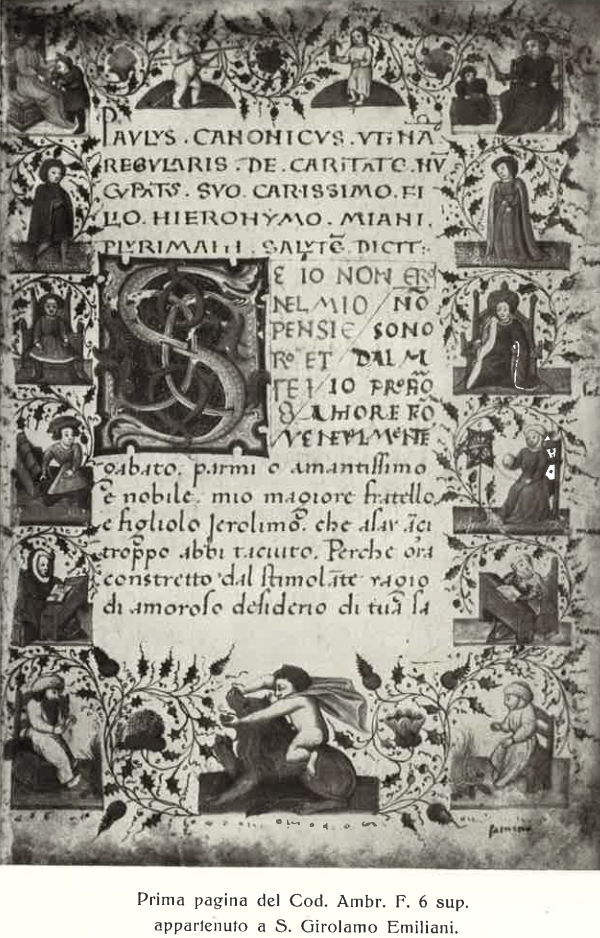 PAVLVS . CANONICVS . VTINĀ
REGVLARIS . DE . CARITATE . NV
CVPATVS . SVO . CARISSIMO . FI
LIO . HIERONYMO . MIANI .
PLVRIMAM . SALVTĒ . DICIT :
SE IO NON ERO
NEL MIO / NŌ
PENSIE SONO
ET DAL M
IO PROPIO
AMORE FO
gabato. parmi o amantissimo
e nobile. mio magiore fratello,
e figliolo Jerolimo. che asai āci
troppo abbi taciuto. Perche ora
constretto dal stimolāte ragio
di amoroso desiderio di tua sa
Prima pagina del Cod. Ambr. F. 6 sup.
appartenuto a S. Girolamo Emiliani.